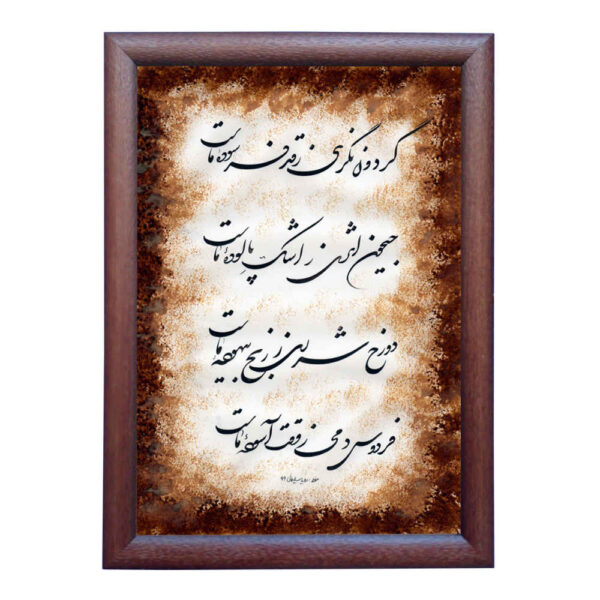 گردون نگری ز قد فرسوده ماست
جیحون اثری ز اشک پالوده ماست
دوزخ شرری ز رنج بیهوده ماست
فردوس دمی ز وقت آسوده ماست